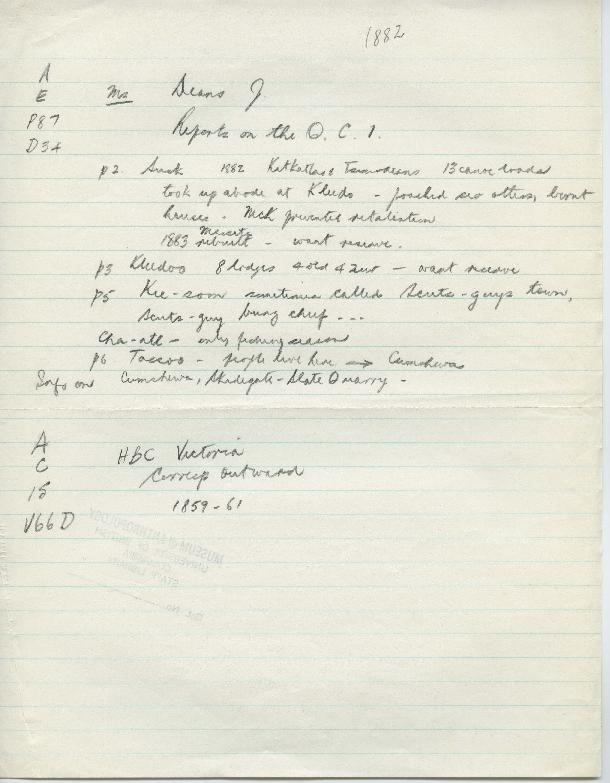 1882
A
E
P87
D34
Ms Deans J
Reports on the Q. C. I.
p2. 1882 Kitkatlas & Tsimseans 13 canoe loads
took up abode at Kludo - poached sea otters, burnt
houses. McK prevented retaliation
1883 Massets rebuilt - want reserve.
p3 Kludoo 8 lodges 4 old 4 new - want reserve
p5 Kee-som sometimes called Scuts-guys town,
Scuts-guy being chief ---
Cha-atl - only fishing season
p6 Tassoo - people live here → Cumshewa
Info on Cumshewa, Skidegate - Slate Quarry -
A
C
15
V66D
HBC Victoria
Corresp Outward
1859-61
MUSEUM of ANTHROPOLOGY
UNIVERSITY OF BRITISH
COLUMBIA